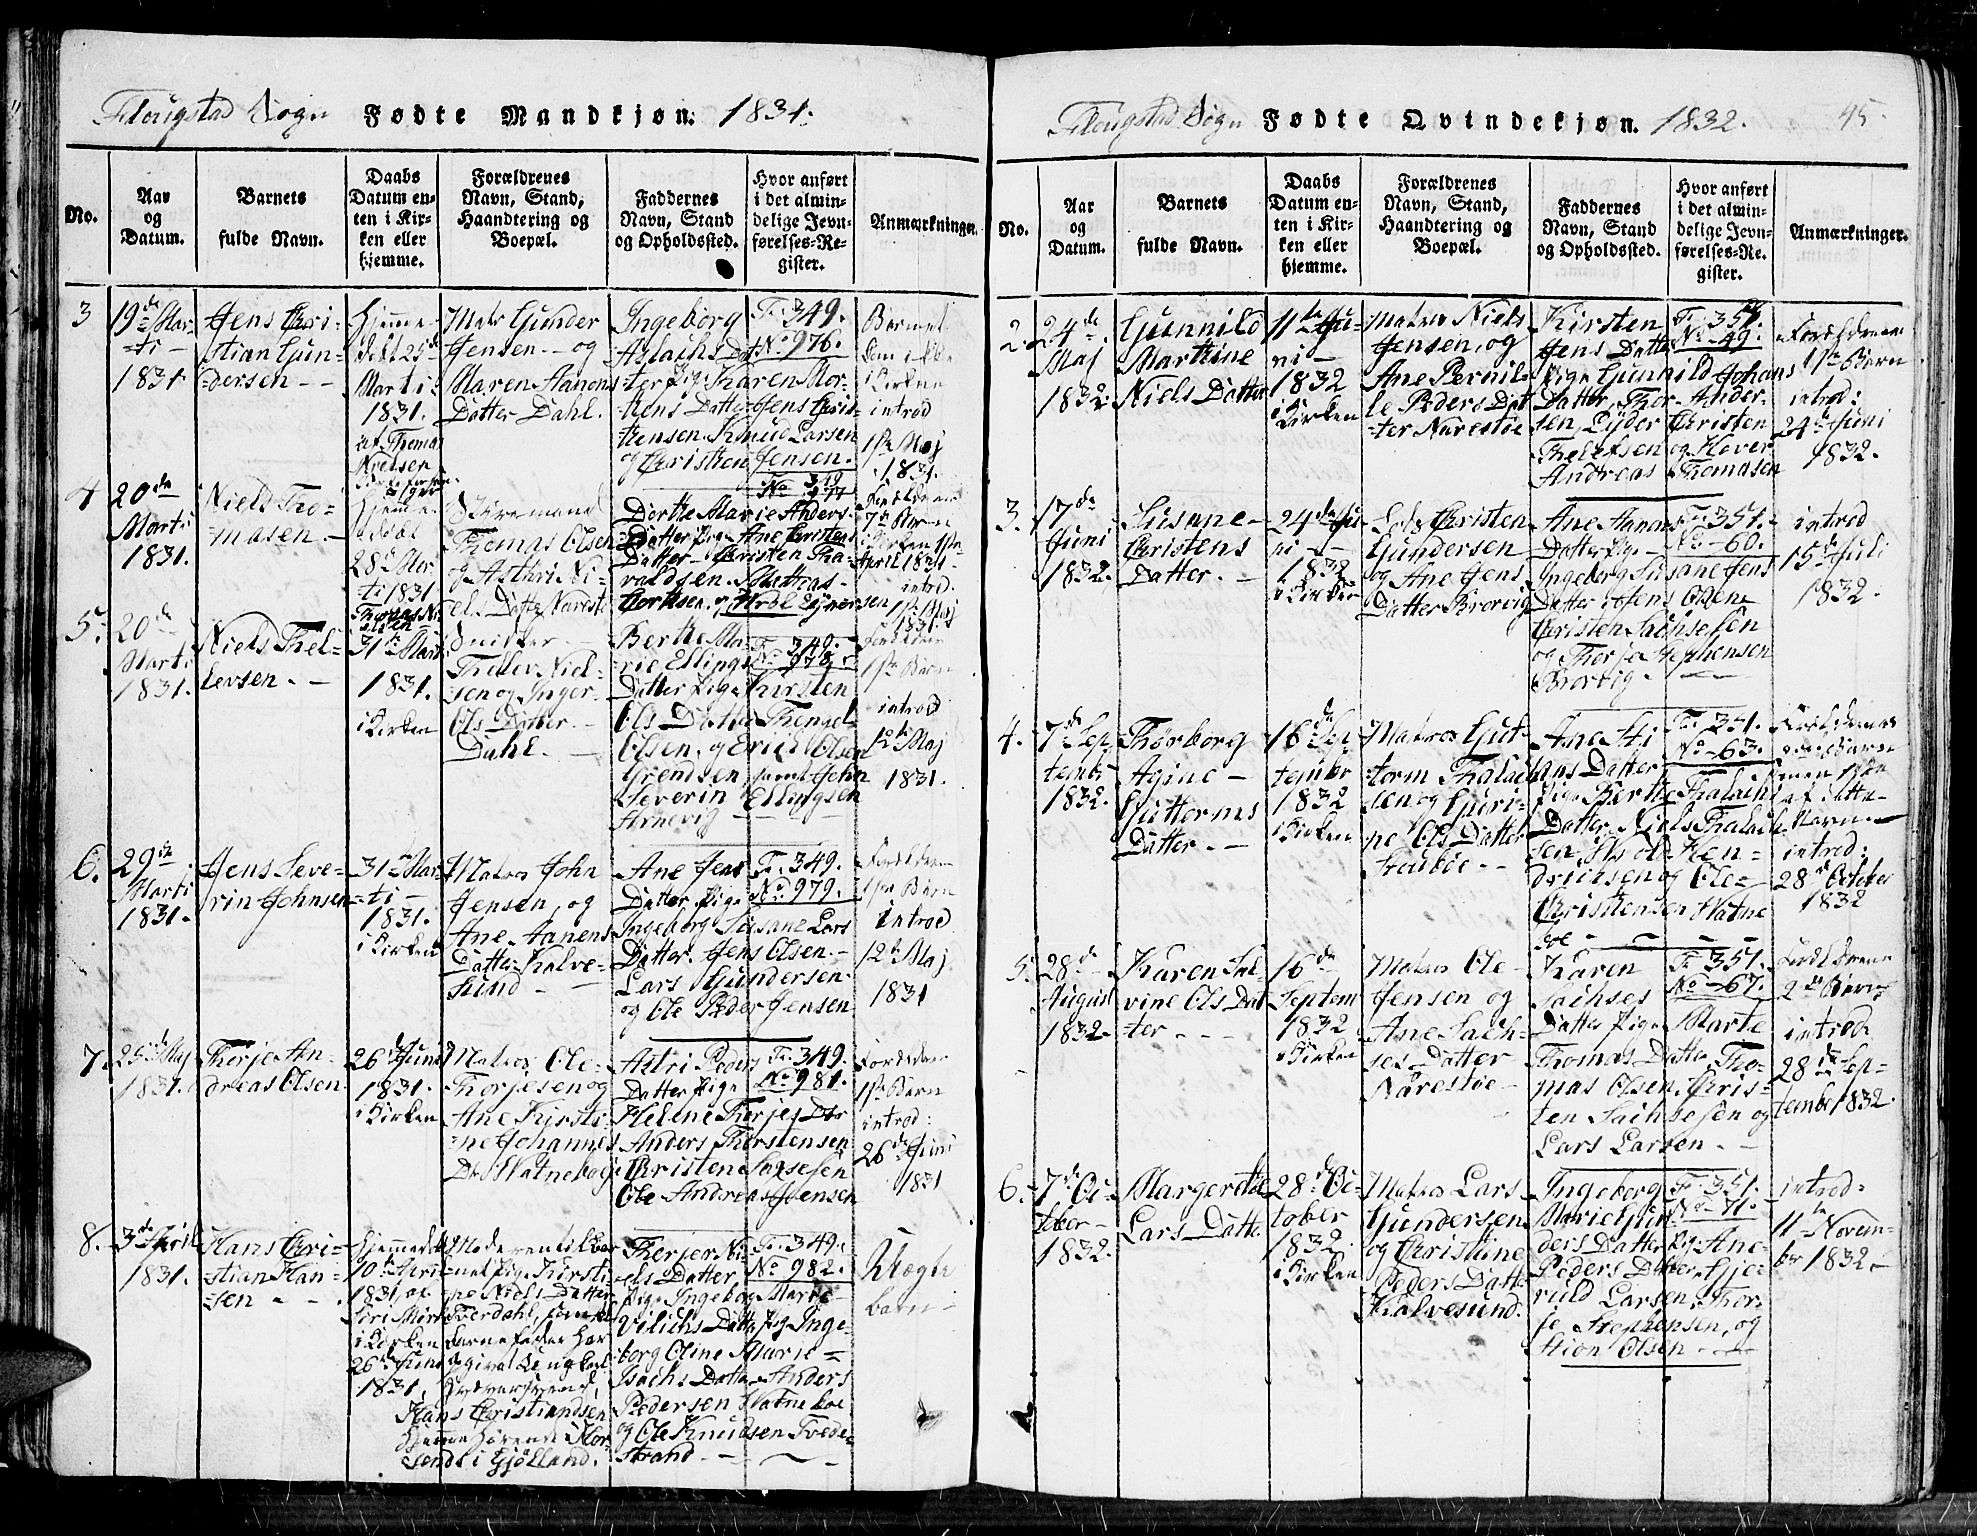 Flougstad Sogn Fødte Mandkjøn. 1831.
No.
Aar
og
Datum.
Barnets
fulde Navn.
Daabs
Datum en-
ten i Kir-
ken eller
hjemme.
Forældrenes
Navn, Stand,
Haandtering og
Boepæl.
Faddernes
Navn, Stand
og Opholdssted.
Hvor anført
i det almin-
delige Jevn-
førelses-Re-
gister.
Anmærkninger.
3
19de Mar-
ti
1831
Jens Chri-
stian Gun-
dersen
Hjemme
døbt 25de
Marti
1831.
af Thomas
Nielsen
Mats Gunder
Jensen og
Maren Aanons
Datter Dahl.
Ingeborg
Aslachs Dat-
ter Pige Karen Mor-
tens Datter Jens Chris-
tensen Knud Larsen
og Christen Jensen.
F. 349.
No 976.
Barnet
introd
1ste Maj
1831.
4
20de
Marti
1831.
Niels Tho-
masen
Hjemme-
døbt
28de Mar-
ti 1831
Styrmand
Thomas Olsen
og Asthri Ni-
els Datter Narestø
Dorthe Marie Anders-
Datter Pige Ane Christens
Datter Christen Tha-
valdsen Mathias
No 349
977
7de Barn
April 1831
introd.
1ste Maj
1831
5.
20de
Marti
1831.
Niels Thel-
levsen.
31te Marti
1831.
i Kirken
Snidker
Thellev Niel-
sen og Inger
Ols Datter
Dahl.
Berthe Ma-
rie Ellings
Datter Pige Kirsten
Ols Datter
Olsen, og Erich Olsen
samt John
Severin Ellingsen
Arnevig
F. 349.
No 978.
1ste Barn
introd
12te Maj
1831.
6.
29de
Marti
1831.
Jens Seve-
rin Johnsen
31te Mar-
ti
1831.
i Kirken
Matros John
Jensen, og
Ane Aanens
Datter Kalve-
sund
Ane Jens
Datter Pige
Ingeborg Susane Lars
Datter. Jens Olsen
Lars Gundersen
og Ole Peder Jensen
F. 349.
No 979.
Forældrenes
1ste Barn
introd
12te Maj
1831
7.
25de Maj
1831.
Therje An-
dreas Olsen
26de Juni
1831.
i Kirken
Matros Ole
Thorjesen og
Ane Kirsti-
ne Johannes
Dr Watneboe
Astri Peders
Datter Pige
Helene Therjes Dtr
Anders Thorstensen
Christen Sachsesen
Ole Andreas Jensen
F. 349.
No 981.
Forældrenes
1ste Barn
introd:
26de Juni
1831
8.
3de April
1831.
Hans Chri-
stian Han-
sen
Hjemmedøbt
10de April
1831, af
i Kirken
26de Juni
1831.
Moderen til Bar-
net Pige Kirsti-
ne Niels Datter
Tverdahl, som til
Barnefader har
Hans Christiandsen
hjemmehørende Hor-
sens i Gjølland.
Therjer Ni-
els Datter,
Pige Ingeborg Marie
Datter Pig Inge-
borg Oline Marie
Isachs Datter Anders
Pedersen Watneboe
og Ole Knudsen Tvede-
strand
F. 349.
No 982.
Uægte
barn
Flougstad Sogn Fødte Qvindekjøn. 1832. 45.
No.
Aar
og
Datum.
Barnets
fulde Navn.
Daabs
Datum en-
ten i Kir-
ken eller
hjemme.
Forældrenes
Navn, Stand,
Haandtering og
Boepæl.
Faddernes
Navn, Stand
og Opholdssted.
Hvor anført
i det almin-
delige Jevn-
førelses-Re-
gister.
Anmærkninger.
2.
24de
Maj
1832.
Gunnild
Marthine
Niels Datter
11te Ju-
ni
1832
i Kirken
Matros Niels
Jensen, og
Ane Pernil-
le Peders Dat-
ter Narestøe
Kirsten
Jens Datter
Pige Gunnild Johans
Datter, Thor Ander-
sen, Christen
Thellefsen og Hover
Andreas Thomasen
F. 351
No 49.
Forældrenes
1ste Barn
introd:
24de Juni
1832.
3.
17de
Juni
1832.
Susane
Christens
Datter.
24de Ju-
ni
1832
i Kirken
Christen
Gundersen
og Ane Jens
Datter Brorvig
Ane Aanons
Datter Pige
Ingeborg Susane Jens
Datter Jens Olsen
Christen Sachsesen
og Therje Stephensen
Brorvig
F. 351.
No 60.
introd
15de Juli
1832.
4.
7de Sep
tembr
1832.
Thorborg
Agine
Guttorms
Datter.
16de Sep
tember
1832
i Kirken
Matros Gut-
torm Thalach
sen og Guri-
ne Ols Datter
Ane Sti
ans Datter
Pige Berthe Thalachs
Datter, Niels Thalach
sen, Hen-
drichsen og Ole
Christensen Watne
boe
F. 351.
No 63.
Forældrenes
Barn
introd:
28de October
1832
5.
28de
August
1832.
Karen Sal-
vine Ols Dat
ter
16de
Septem
1832
i Kirken
Matros Ole
Jensen og
Ane Sach-
ses Datter
Narestøe
Karen
Sachses
Datter Pige Marte
Thomas Datter, Tho-
mas Olsen, Chris-
ten Sachsesen og
Lars Larsen
F. 351.
No 67.
Forældrenes
2det Barn
introd
28de Sep-
tember 1832.
6.
7de Oc-
tober
1832.
Margerethe
Lars Datter
28de Oc-
tober
1832.
i Kirken
Matros Lars
Gundersen
og Christine
Peders Datter
Kalvesund.
Ingeborg
Marie Gun
ders Datter Pig: Ane
Peders Datter, Gje-
ruld Larsen, Thor-
je Stephensen, og
Stion Olsen
F. 351.
No 71.
introd:
11te Novem-
ber 1832.